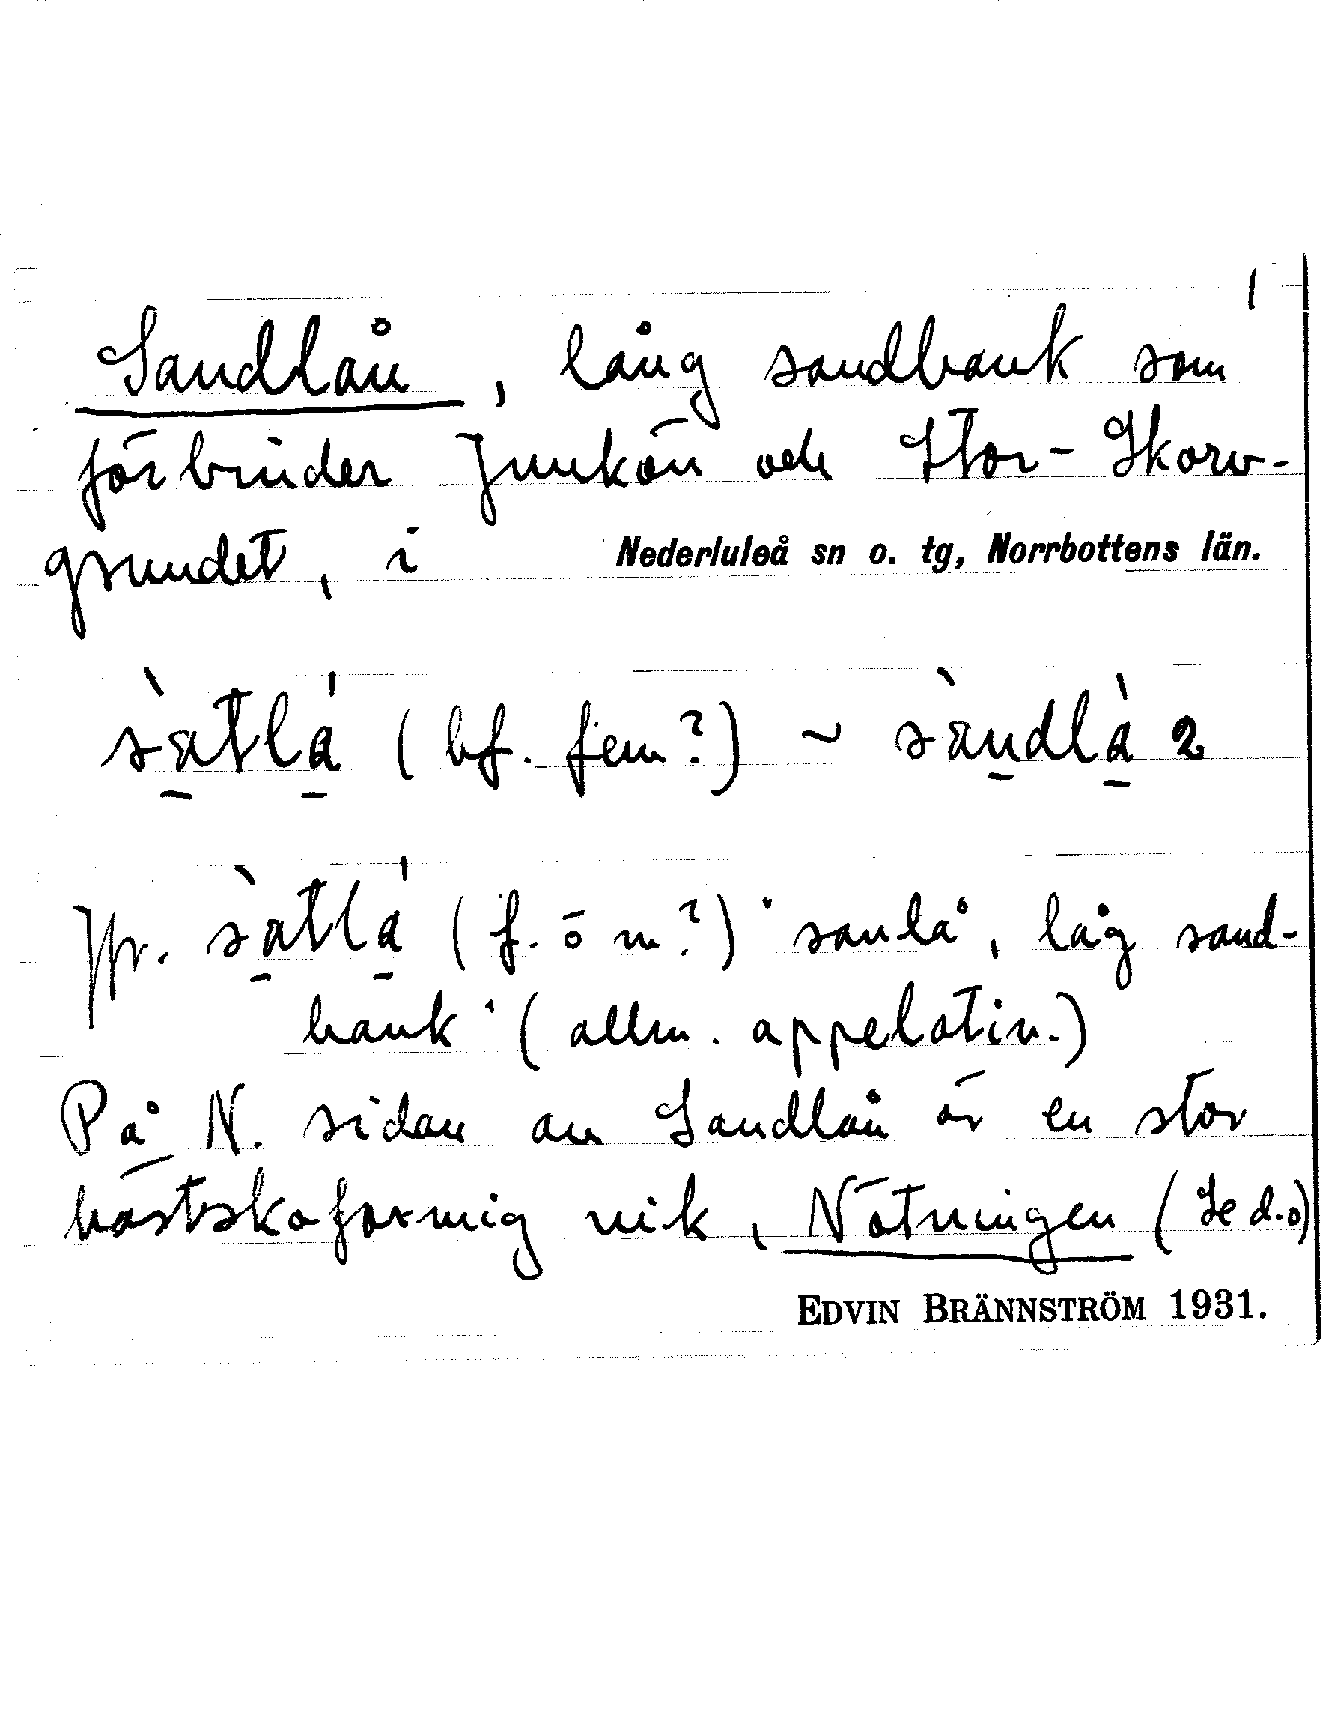 1
Sandlån, lång sandbank som
förbinder Junkön och Stor-Skorv-
grundet, i Nederluleå sn o. tg, Norrbottens län.
sàtlá (bf. fem?) ~ sàndlà 2
Jfr. sàtlá (f. o m?) 'sanlå, låg sand-
bank' (allm. appelativ.)
På N. sidan av Sandlån är en stor
hästskoformig vik, Nötningen (Se d.o)
EDVIN BRÄNNSTRÖM 1931.